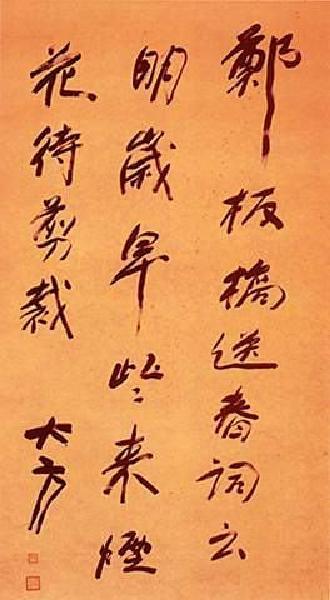 鄭板橋送春詞云
明歲早些来煙
花待剪裁
大方